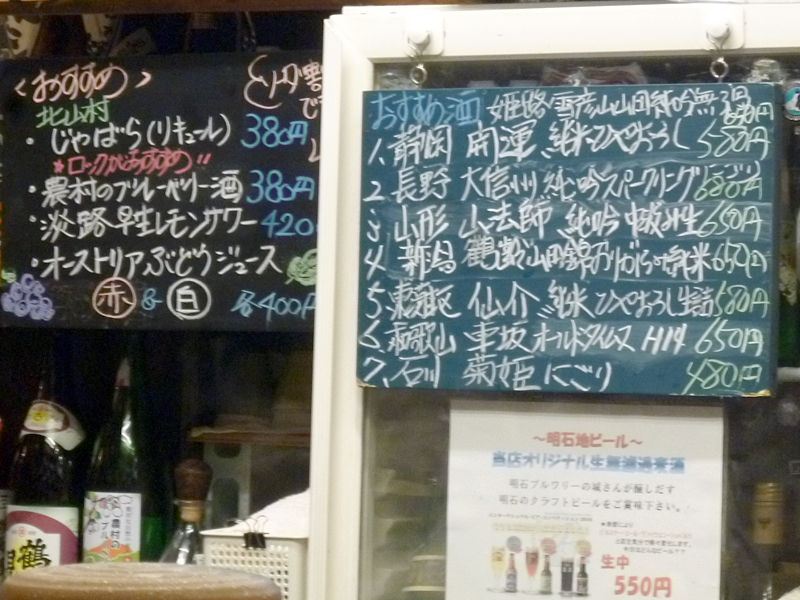 〈おすすめ〉
北山村
・じゃばら(リキュール) 380円
*ロックがおすすめ!!
・農村のブルーベリー酒 380円
・淡路早生レモンサワー 420
・オーストリアぶどうジュース
赤 & 白 各400円
おすすめ酒 姫路 雪彦山 山田純吟無濾過
1. 静岡 開運 純米ひやおろし 580円
2. 長野 大信州 純吟スパークリング 680円
3. 山形 山法師 純吟 650円
4. 新潟 鶴齢 山田錦 純米 650円
5. 仙介 純米 ひやおろし生詰 580円
6. 和歌山 車坂 オールドタイムス H14 650円
7. 石川 菊姫 にごり 480円
〜明石地ビール〜
当店オリジナル生無濾過麦酒
明石ブルワリーの城さんが醸しだす
明石のクラフトビールをご賞味下さい。!
生中
550円
鶴
農村の